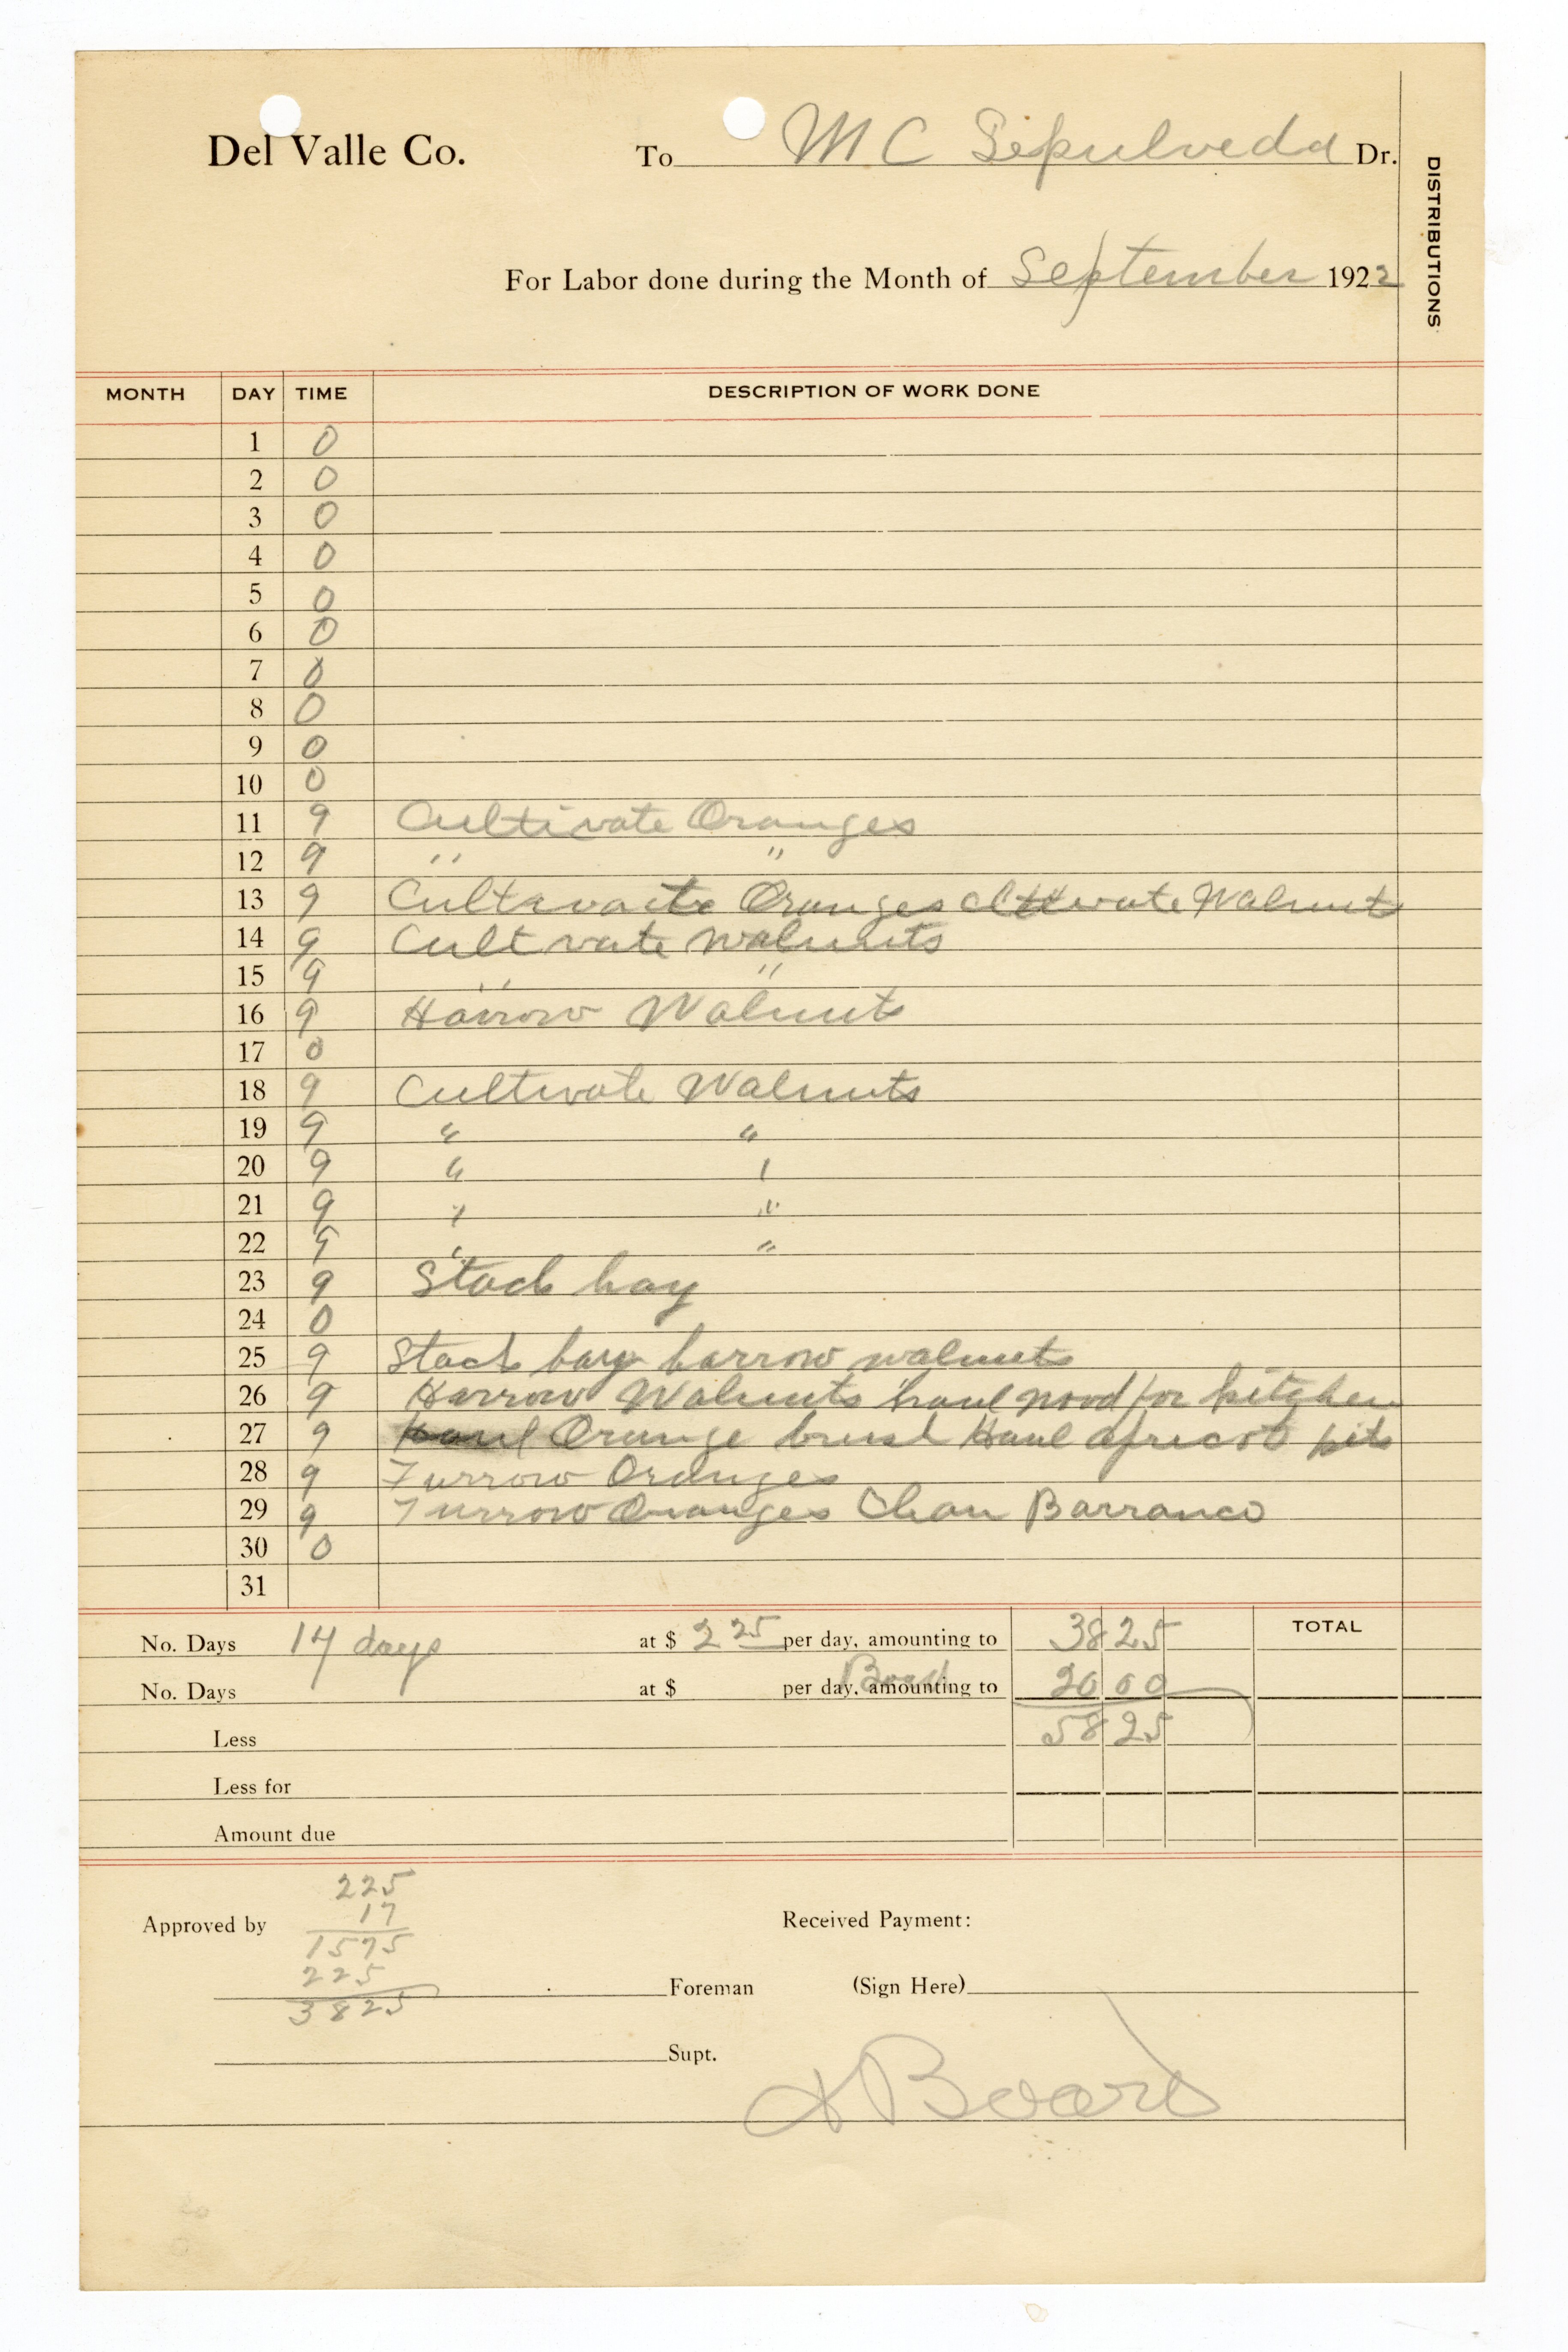 Del Valle Co. To M C Sepulveda Dr.
DISTRIBUTIONS
For Labor done during the Month of September 1922
MONTH DAY TIME DESCRIPTION OF WORK DONE
1 0
2 0
3 0
4 0
5 0
6 0
7 0
8 0
9 0
10 0
11 9 Cultivate Oranges
12 9 " "
13 9 Cultivate Oranges Walnuts
14 9 Cultvate walnuts
15 9 " "
16 9 Harrow Walnuts
17 0
18 9 Cultivate Walnuts
19 9 " "
20 9 " "
21 9 " "
22 9 " "
23 9 Stack hay
24 0
25 9 Stack hay harrow walnuts
26 9 Harrow Walnuts haul wood for kitchen
27 9 Haul Orange brush Haul apricot pits
28 9 Furrow Oranges
29 9 Furrow Oranges Clean Barranco
30 0
31
No. Days 17 days at $ 2 25 per day, amounting to 38 25 TOTAL
No. Days at $ per day, amounting to Board 20 00
Less 58 25
Less for
Amount due
225
17
1575
225
3825
Approved by Received Payment:
Foreman (Sign Here)
Supt.
Board